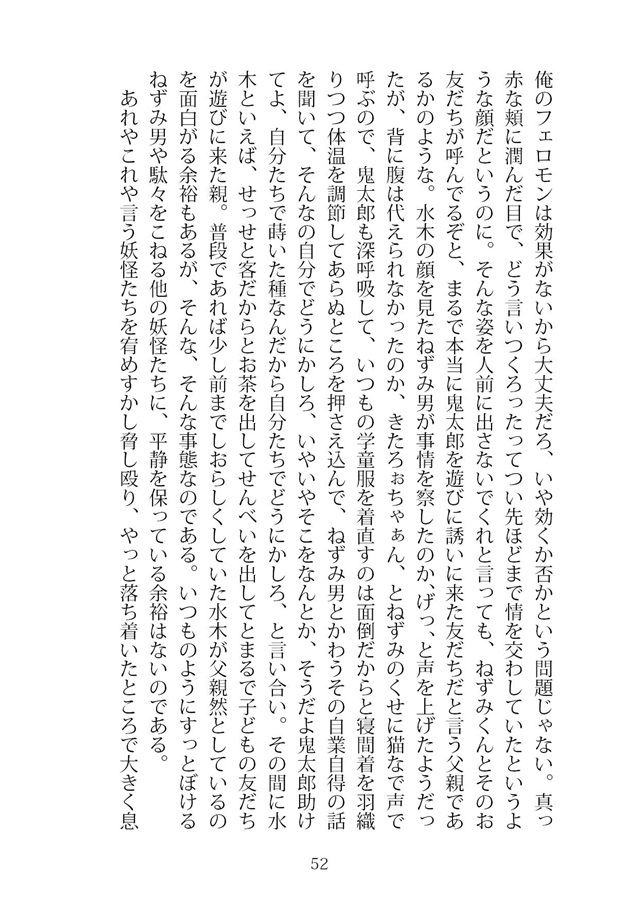 俺のフェロモンは効果がないから大丈夫だろ、いや効くか否かという問題じゃない。真っ
赤な頬に潤んだ目で、どう言いつくろったってつい先ほどまで情を交わしていたというよ
うな顔だというのに。そんな姿を人前に出さないでくれと言っても、ねずみくんとそのお
友だちが呼んでるぞと、まるで本当に鬼太郎を遊びに誘いに来た友だちだと言う父親であ
るかのような。水木の顔を見たねずみ男が事情を察したのか、げっ、と声を上げたようだっ
たが、背に腹は代えられなかったのか、きたろぉちゃぁん、とねずみのくせに猫なで声で
呼ぶので、鬼太郎も深呼吸して、いつもの学童服を着直すのは面倒だからと寝間着を羽織
りつつ体温を調節してあらぬところを押さえ込んで、ねずみ男とかわうその自業自得の話
を聞いて、そんなの自分でどうにかしろ、いやいやそこをなんとか、そうだよ鬼太郎助け
てよ、自分たちで蒔いた種なんだから自分たちでどうにかしろ、と言い合い。その間に水
木といえば、せっせと客だからとお茶を出してせんべいを出してとまるで子どもの友だち
が遊びに来た親。普段であれば少し前までしおらしくしていた水木が父親然としているの
を面白がる余裕もあるが、そんな、そんな事態なのである。いつものようにすっとぼける
ねずみ男や駄々をこねる他の妖怪たちに、平静を保っている余裕はないのである。
あれやこれや言う妖怪たちを宥めすかし脅し殴り、やっと落ち着いたところで大きく息
52